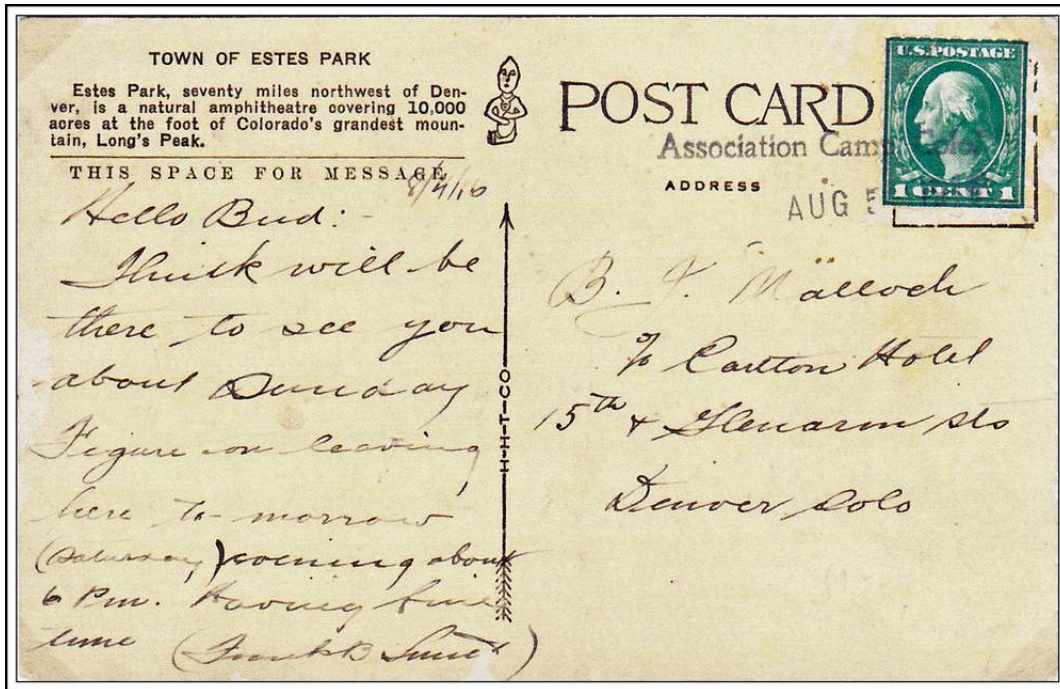 TOWN OF ESTES PARK
Estes Park, seventy miles northwest of Den-
ver, is a natural amphitheatre covering 10,000
acres at the foot of Colorado's grandest moun-
tain, Long's Peak.
THIS SPACE FOR MESSAGE
8/4/16
Hello Bud: -
Think will be
there to see you
about Sunday
Figure on leaving
here to-morrow
(Saturday) evening about
6 Pm. Having fine
time (Frank B Smith)
H-H-T-CO
POST CARD
Association Camp, Colo.
ADDRESS
AUG 5
U.S. POSTAGE
1 CENT 1
B. F. Malloch
% Carlton Hotel
15th + Glenarm sts
Denver Colo